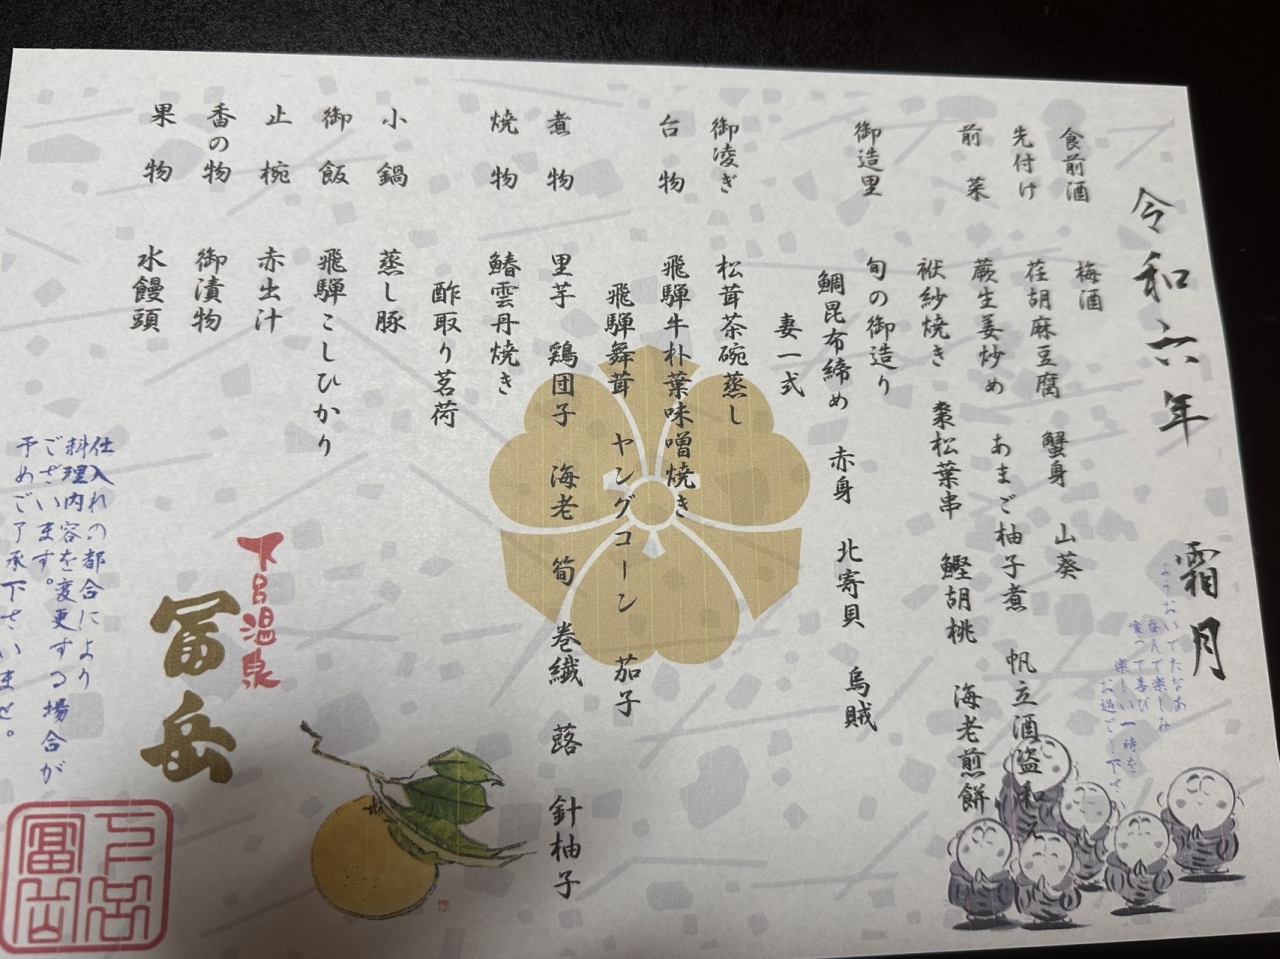 令和六年 霜月
ようおいでたなあ
呑んで楽しみ
食って喜び
楽しい一時を
お過ごし下さい
食前酒 梅酒
先付け 荏胡麻豆腐 蟹身 山葵
前菜 蕨生姜炒め あまご柚子煮 帆立酒盗和え
袱紗焼き 棗松葉串 鰹胡桃 海老煎餅
御造里 旬の御造り
鯛昆布締め 赤身 北寄貝 烏賊
妻一式
御凌ぎ 松茸茶碗蒸し
台物 飛騨牛朴葉味噌焼き
飛騨舞茸 ヤングコーン 茄子
煮物 里芋 鶏団子 海老 筍 巻繊 蕗 針柚子
焼物 鰆雲丹焼き
酢取り茗荷
小鍋 蒸し豚
御飯 飛騨こしひかり
止椀 赤出汁
香の物 御漬物
果物 水饅頭
下呂温泉
冨岳
仕入れの都合により
料理内容を変更する場合が
ございます。
予めご了承下さいませ。
下呂
冨岳